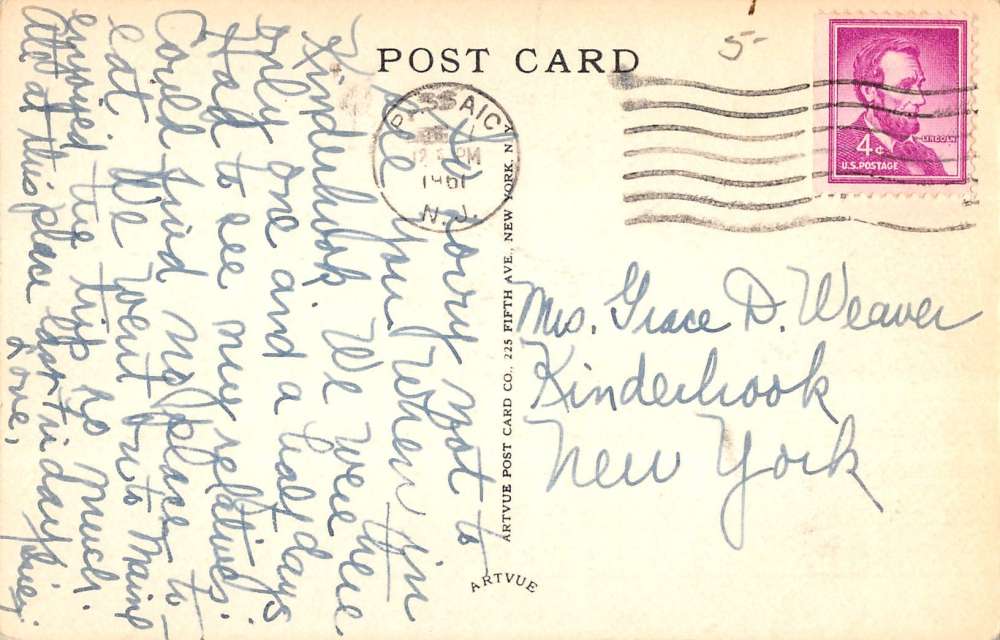 POST CARD
5-
PASSAIC
PM
1961
N.J.
LINCOLN
4¢
U.S. POSTAGE
So sorry not to
see you when in
Kinderhook. We were there
only one and a half days
Had to see my relatives.
Could find no place to
eat. We went on to Maine
enjoyed the trip so much.
Ate at this place last Friday
Love,
ARTVUE POST CARD CO., 225 FIFTH AVE., NEW YORK, N.Y.
ARTVUE
Mrs. Grace D. Weaver
Kinderhook
New York